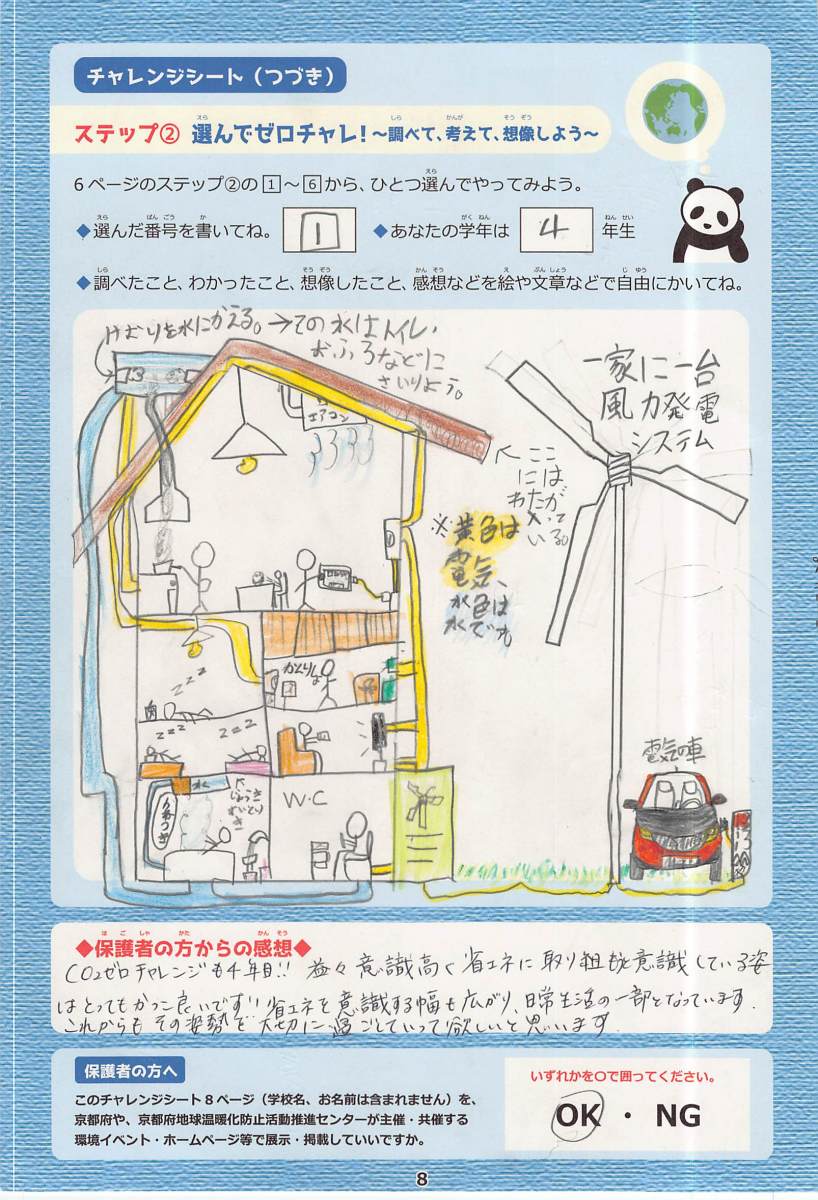 チャレンジシート（つづき）
ステップ② 選んでゼロチャレ！～調べて、考えて、想像しよう～
6ページのステップ②の1～6から、ひとつ選んでやってみよう。
◆選んだ番号を書いてね。 1 ◆あなたの学年は 4 年生
◆調べたこと、わかったこと、想像したこと、感想などを絵や文章などで自由にかいてね。
けむりを水にかえる。→その水はトイレ、
おふろなどに
さいりよう。
エアコン
一家に一台
風力発電
システム
←ここ
には
わたが
入って
いる。
※黄色は
電気、
水色は
水です
zzz
zzz
zzz
水
W.C
電気の車
◆保護者の方からの感想◆
CO2ゼロチャレンジも4年目!! 益々意識高く省エネに取り組もと意識している姿
はとってもかっこ良いです!! 省エネを意識する幅も広がり、日常生活の一部となっています.
これからもその姿勢で大切に過ごしていって欲しいと思います.
保護者の方へ
このチャレンジシート8ページ（学校名、お名前は含まれません）を、
京都府や、京都府地球温暖化防止活動推進センターが主催・共催する
環境イベント・ホームページ等で展示・掲載していいですか。
いずれかを○で囲ってください。
OK ・ NG
8